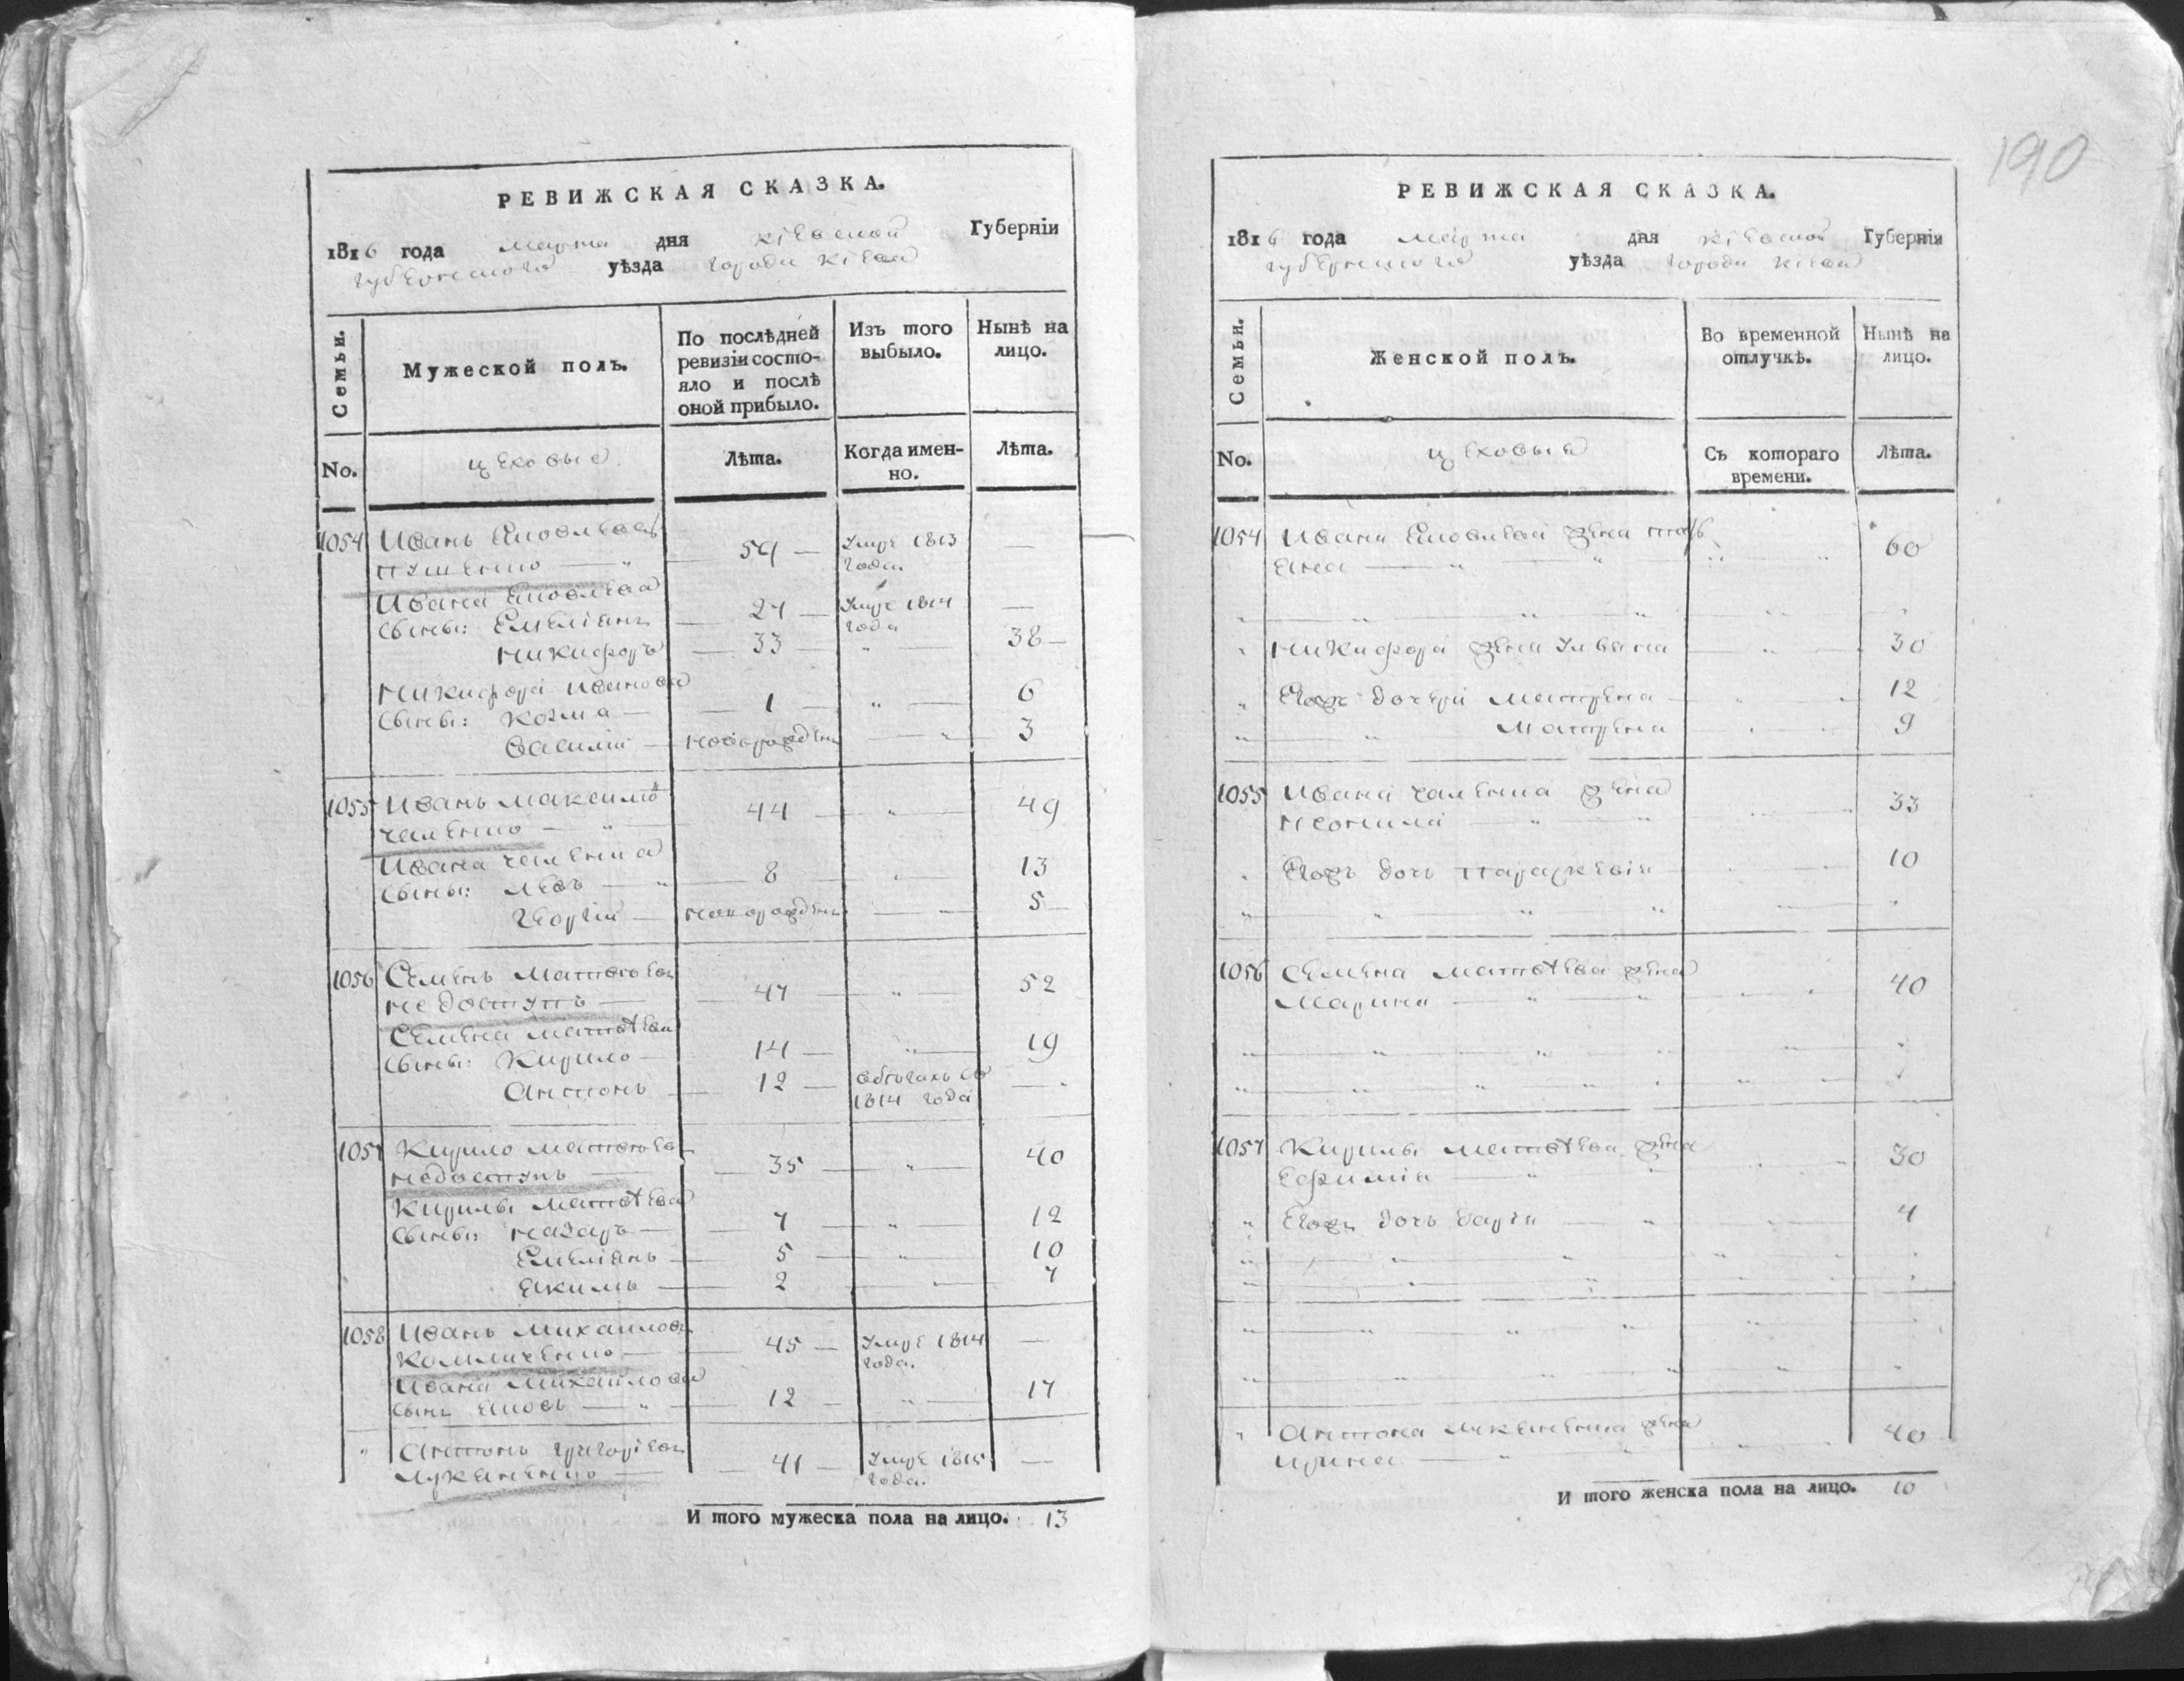 190
РЕВИЖСКАЯ СКАЗКА.
1816 года марта дня Кіевской Губерніи
губернского уѣзда города Кіева
Семьи.
Мужеской полъ.
По послѣдней ревизіи состо-
яло и послѣ
оной прибыло.
Изъ того
выбыло.
Нынѣ на
лицо.
No.
цеховые
Лѣта.
Когда имен-
но.
Лѣта.
1054 Иванъ Яковлевъ 59 Умре 1813
года.
Ивана Яковлева
сыны: Емеліянъ 27 Умре 1814
года
Никифоръ 33 " 38
Никифора Иванова
сыны: Козма 1 " 6
Василій новорожденъ " 3
1055 Иванъ Максимо
Галенко 44 " 49
Ивана Галенка
сыны: Левъ 8 " 13
Георгій новорожденъ " 5
1056 Семенъ Матвѣевъ
Недоступъ 47 " 52
Семена Матвѣева
сыны: Кирило 14 " 19
Антонъ 12 въ бѣгахъ съ
1814 года
1057 Кирило Матвѣевъ
Недоступъ 35 " 40
Кирилы Матвѣева
сыны: Назаръ 7 " 12
Емеліянъ 5 " 10
Якимъ 2 " 7
1058 Иванъ Михайловъ
45 Умре 1814
года.
Ивана Михайлова
сынъ Яковъ 12 " 17
" Антонъ Григоріевъ
Лукяненко 41 Умре 1815
года.
И того мужеска пола на лицо. 13
РЕВИЖСКАЯ СКАЗКА.
1816 года марта дня Кіевской Губерніи
губернского уѣзда города Кіева
Семьи.
Женской полъ.
Во временной
отлучкѣ.
Нынѣ на
лицо.
No.
цеховыя
Съ котораго
времени.
Лѣта.
1054 Ивана Яковлева жена Тать
яна 60
Никифора жена Ульяна 30
Егожъ дочери Матрена 12
Матрена 9
1055 Ивана Галенка жена
Неонила 33
Егожъ дочь Параскевія 10
1056 Семена Матвѣева жена
Марина 40
1057 Кирилы Матвѣева жена
Ефимія 30
Егожъ дочь Дарія 4
Антона Лукяненка жена
Ирина 40
И того женска пола на лицо. 10